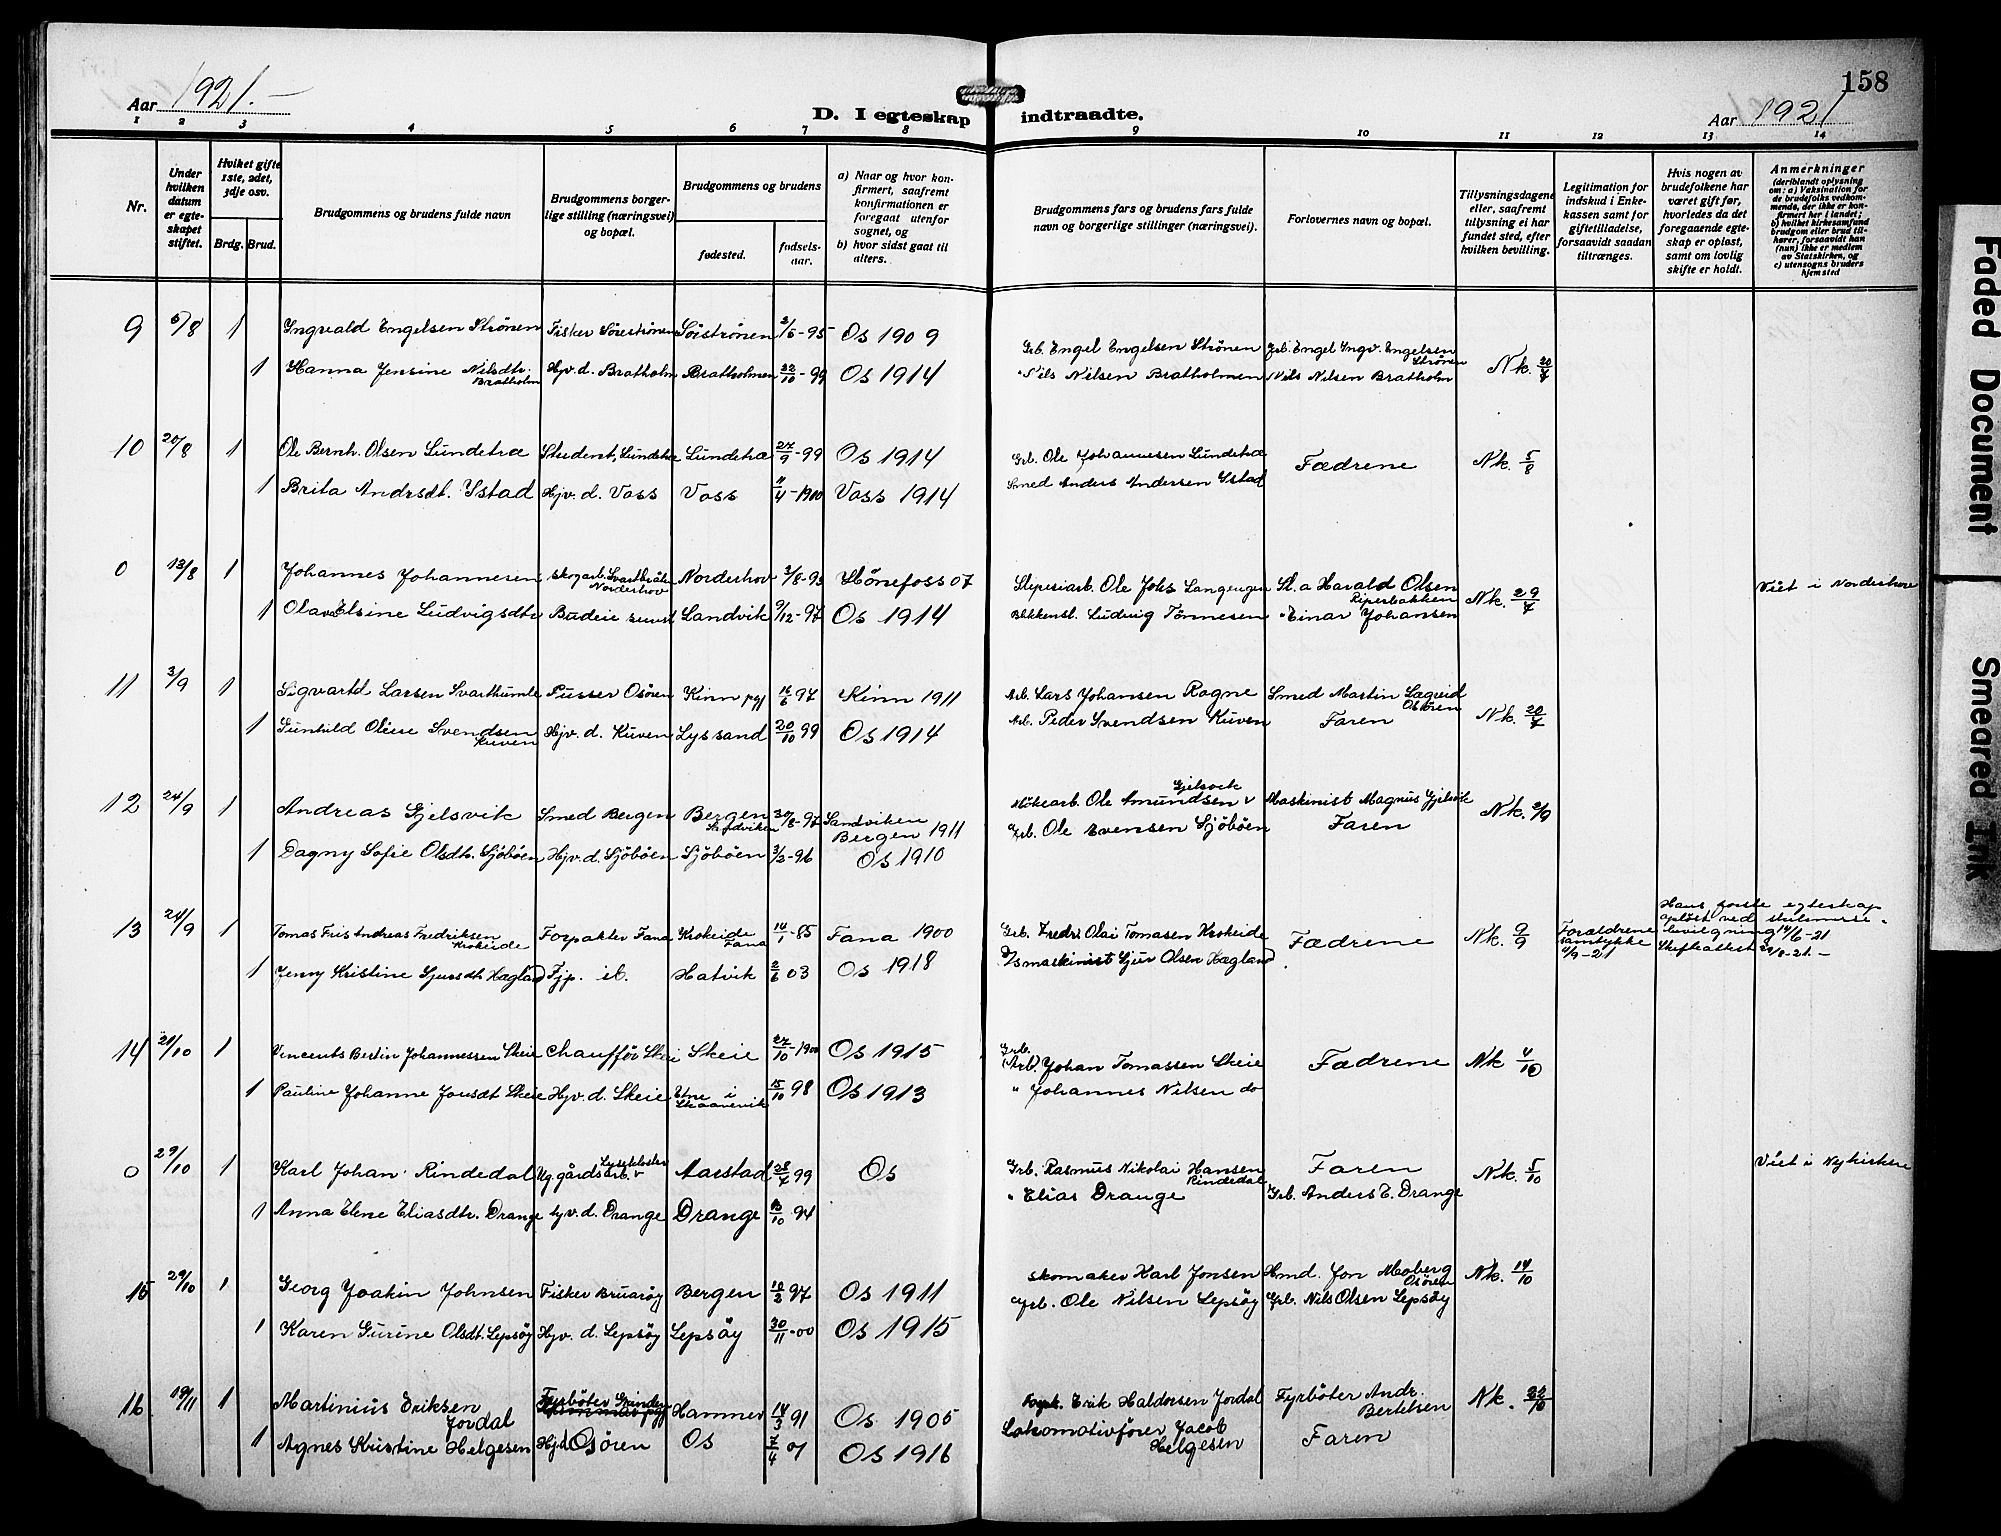 158
Aar 1921.—
D. I egteskap indtraadte.
Aar 1921
1 2 3 4 5 6 7 8 9 10 11 12 13 14
Nr.
Under hvilken datum er egte-skapet stiftet.
Hvilket gifte 1ste, 2det, 3dje osv.
Brdg. Brud.
Brudgommens og brudens fulde navn
Brudgommens borger-lige stilling (næringsvei) og bopæl.
Brudgommens og brudens
fødested.
fødsels-aar.
a) Naar og hvor kon-firmert, saafremt konfirmationen er foregaat utenfor sognet, og
b) hvor sidst gaat til alters.
Brudgommens fars og brudens fars fulde navn og borgerlige stillinger (næringsvei).
Forlovernes navn og bopæl.
Tillysningsdagene eller, saafremt tillysning ei har fundet sted, efter hvilken bevilling.
Legitimation for indskud i Enke-kassen samt for giftetilladelse, forsaavidt saadan tiltrænges.
Hvis nogen av brudefolkene har været gift før, hvorledes da det foregaaende egte-skap er opløst, samt om lovlig skifte er holdt.
Anmerkninger
(deriblandt oplysning om: a) Vaksination for de brudefolks vedkom-mende, der ikke er kon-firmert her i landet; b) hvilket kirkesamfund brudgom eller brud til-hører, forsaavidt han (hun) ikke er medlem av Statskirken, og c) utensogns bruders hjemsted
9 6/8 1 Ingvald Engelsen Strönen Fisker Söreströnen Söiströnen -95 Os 1909 Grb. Engel Engelsen Strönen Grb. Engel Ingv. Engelsen Strönen
1 Hanna Jensine Nilsdtr. Bratholm Hjv. d. Bratholm Bratholmen 22/10-99 Os 1914 " Nils Nilsen Bratholmen Nils Nilsen Bratholm Nk. 20/7
10 20/8 1 Ole Bernh. Olsen Lundetræ Student, Lundetræ Lundetræ 27/9-99 Os 1914 Grb. Ole Johannesen Lundetræ Fædrene Nk. 5/8
1 Brita Andrsdt. Ystad Hjv. d. Voss Voss 11/4-1900 Voss 1914 Smed Anders Andersen Ystad
0 13/8 1 Johannes Johannesen Norderhov Norderhov 3/8-93 Hönefoss 07 Slipesiarb. Ole Johs Langengen Harald Olsen Nk. 29/7 Viet i Norderhov
1 Olava Elsine Ludvigsdtr Landvik 9/12-97 Os 1914 Ludvig Tönnesen " Einar Johansen
11 3/9 1 Sigvartd Larsen Svarthumle Pusser Osören Kinn pgj 16/6 97 Kinn 1911 Arb. Lars Johansen Rogne Smed Martin Lægreid Osören
1 Gunhild Oline Svendsen Kuven Hjv. d. Kuven Lyssand 20/10 99 Os 1914 Arb. Peder Svendsen Kuven Faren Nk. 20/7
12 24/9 1 Andreas Gjelsvik Smed Bergen Bergen Sandviken 30/8-97 Sandviken Bergen 1911 Ole Amundsen Gjelsvik Maskinist Magnus Gjelsvik Nk. 2/9
1 Dagny Sofie Olsdtr. Sjöböen Hjv. d. Sjöböen Sjöböen 3/3-96 Os 1910 Grb. Ole Evensen Sjöböen Faren
13 24/9 1 Tomas Fris Andreas Fredriksen Krokeide Forpakter Fana Krokeide Fana 14/1-85 Fana 1900 Grb. Fredr. Olai Tomasen Krokeide Fædrene Nk. 9/9 Forældrenes samtykke 4/9-21 Hans første egteskap opløst ved skilsmisse-bevilgning 14/6-21 Skifteattest -21.-
1 Jenny Kristine Gjursdtr Hagland Tjp. ib. Hatvik 2/6 03 Os 1918 Gjur Olsen Hagland
14 29/10 1 Vincents Bertin Johannessen Skeie Chauffør Skei Skeie 27/10-1900 Os 1915 Grb. (Arb) Johan Tomassen Skeie Fædrene Nk 4/10
1 Pauline Johanne Jonsdt Skeie Hjv. d. Skeie Etne i Skaanevik 15/10 98 Os 1913 " Johannes Nilsen do
0 29/10 1 Karl Johan Rindedal Ug. gårdsarb. Lysekloster Aarstad 28/7 99 Os Grb. Rasmus Nikolai Hansen Rindedal Faren Nk. 5/10 Viet i Nykirken
1 Anna Elene Eliasdtr. Drange Hjv. d. Drange Drange 94 " Elias Drange Grb. Anders E. Drange
15 29/10 1 Georg Joakin Johnsen Fisker Bruaröy Bergen 10/3 97 Os 1911 Skomaker Karl Jonsen Hmd. Jon Moberg Osören Nk. 14/10
1 Karen Gurine Olsdt. Lepsöy Hjv. d. Lepsöy Lepsöy 30/11-00 Os 1915 Grb. Ole Nilsen Lepsöy Grb. Nils Olsen Lepsöy
16 19/11 1 Martinius Eriksen Jordal Fyrböter Hammer 14/3 91 Os 1905 Erik Haldorsen Jordal Fyrböter Andr. Bertelsen Nk. 22/10
1 Agnes Kristine Helgesen Hjd. Osören Os 7/4 01 Os 1916 Lokomotivförer Jacob Helgesen Faren
Faded Document
Smeared Ink